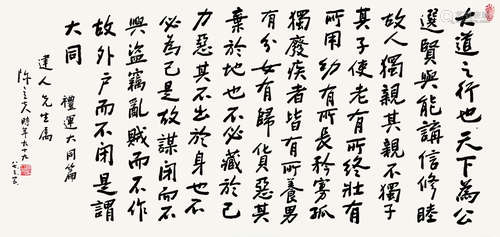 大道之行也天下為公
選賢與能講信修睦
故人獨親其親不獨子
其子使老有所終壯有
所用幼有所長矜寡孤
獨廢疾者皆有所養男
有分女有歸貨惡其
棄於地也不必藏於己
力惡其不出於身也不
必為己是故謀閉而不
興盜竊亂賊而不作
故外戶而不閉是謂
大同 禮運大同篇
人先生屬
陳立夫時年九十九